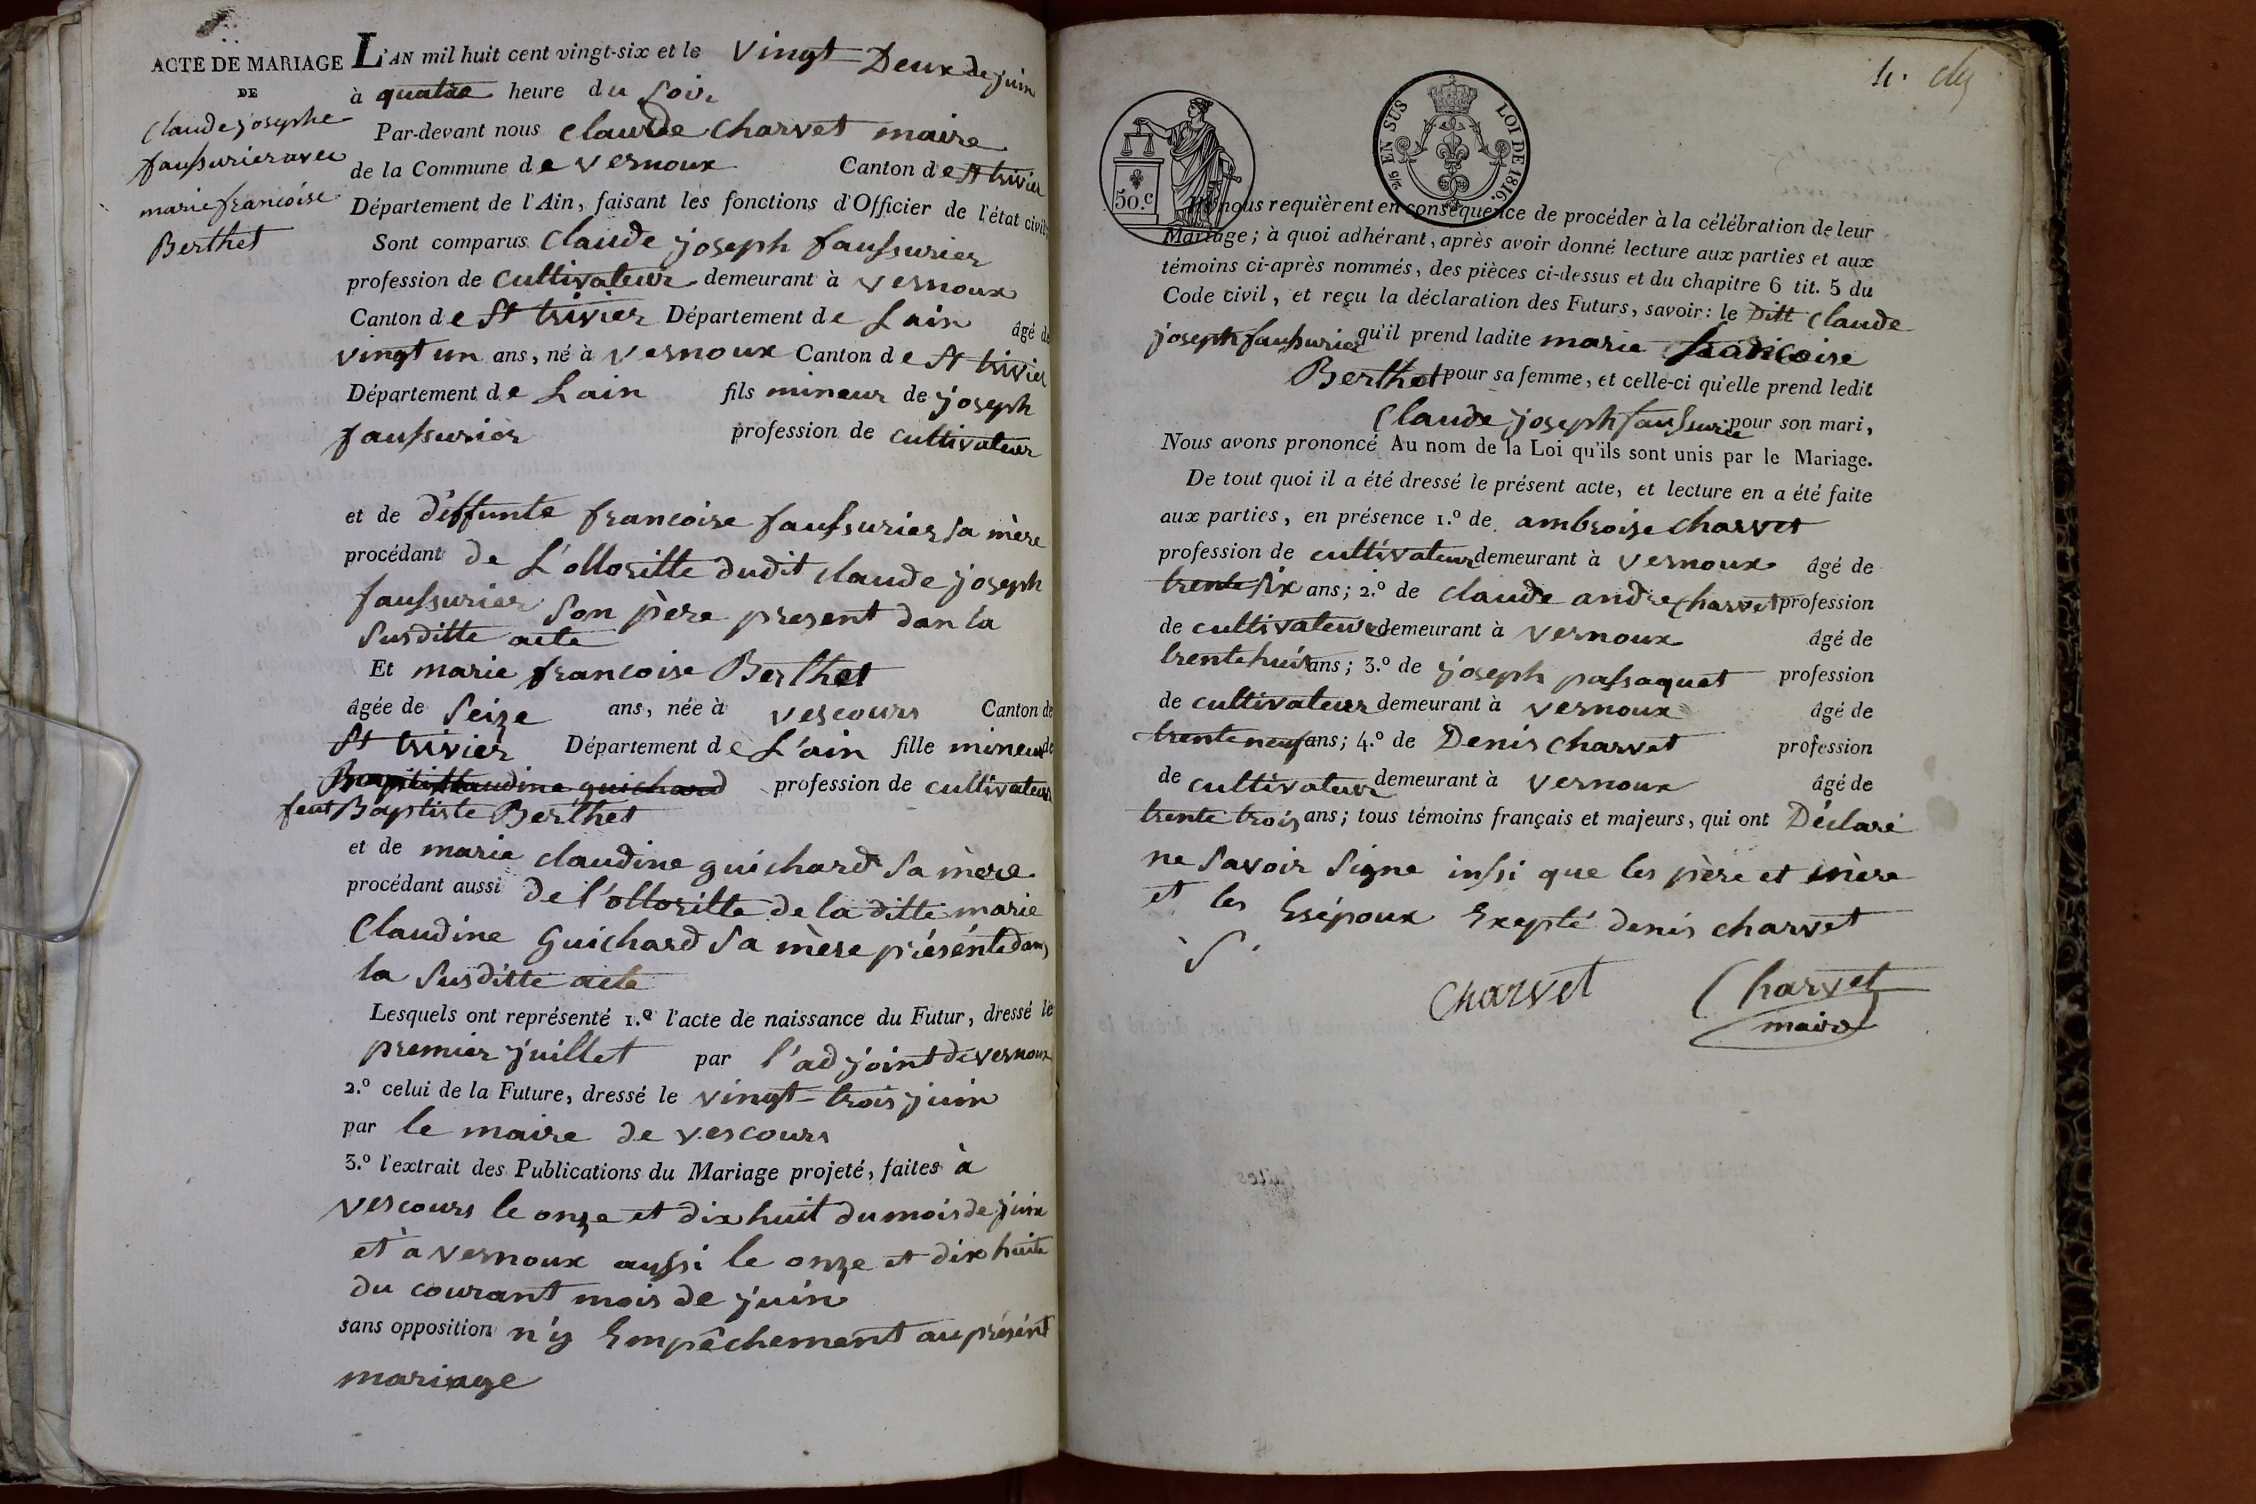 ACTE DE MARIAGE
DE
Claude josephe
faussurier avec
marie francoise
Berthet
L'AN mil huit cent vingt-six et le vingt Deux de juin
à quatre heure du soir
Par-devant nous claude charvet maire
de la Commune de vernoux Canton de St trivier
Département de l'Ain, faisant les fonctions d'Officier de l'état civil.
Sont comparus claude joseph faussurier
profession de cultivateur demeurant à vernoux
Canton de St trivier Département de Lain âgé de
vingt un ans, né à vernoux Canton de St trivier
Département de Lain fils mineur de joseph
faussurier profession de cultivateur
et de déffunte francoise faussurier sa mère
procédant de L'ottoritte dudit claude joseph
faussurier son père present dan la
susditte acte
Et marie francoise Berthet
âgée de seize ans, née à vescours Canton de
St trivier Département de L'ain fille mineur de
claudine guichard profession de cultivateur
feut Baptiste Berthet
et de marie claudine guichard sa mère
procédant aussi de l'ottoritte de la ditte marie
Claudine Guichard sa mère présénte dans
la susditte acte
Lesquels ont représenté 1.º l'acte de naissance du Futur, dressé le
premier juillet par l'adjoint de vernoux
2.º celui de la Future, dressé le vingt-trois juin
par le maire de vescours
3.º l'extrait des Publications du Mariage projeté, faites à
vescours le onze et dix huit du mois de juin
et a vernoux aussi le onze et dix huite
du courant mois de juin
sans opposition n'y Empêchement au présént
mariage
50.C
2/5 EN SUS LOI DE 1816.
nous requièrent en conséquence de procéder à la célébration de leur
Mariage; à quoi adhérant, après avoir donné lecture aux parties et aux
témoins ci-après nommés, des pièces ci-dessus et du chapitre 6 tit. 5 du
Code civil, et reçu la déclaration des Futurs, savoir: le Ditt Claude
joseph faussurier qu'il prend ladite marie francoise
Berthet pour sa femme, et celle-ci qu'elle prend ledit
Claude joseph faussurier pour son mari,
Nous avons prononcé Au nom de la Loi qu'ils sont unis par le Mariage.
De tout quoi il a été dressé le présent acte, et lecture en a été faite
aux parties, en présence 1.º de ambroise charvet
profession de cultivateur demeurant à vernoux âgé de
trente six ans; 2.º de claude andre charvet profession
de cultivateur demeurant à vernoux âgé de
trente huit ans; 3.º de joseph passaquet profession
de cultivateur demeurant à vernoux âgé de
trente neuf ans; 4.º de Denis charvet profession
de cultivateur demeurant à vernoux âgé de
trente trois ans; tous témoins français et majeurs, qui ont Déclaré
ne savoir signe inssi que les père et mère
et les Esépoux Exepté denis charvet
Charvet
Charvet
maire